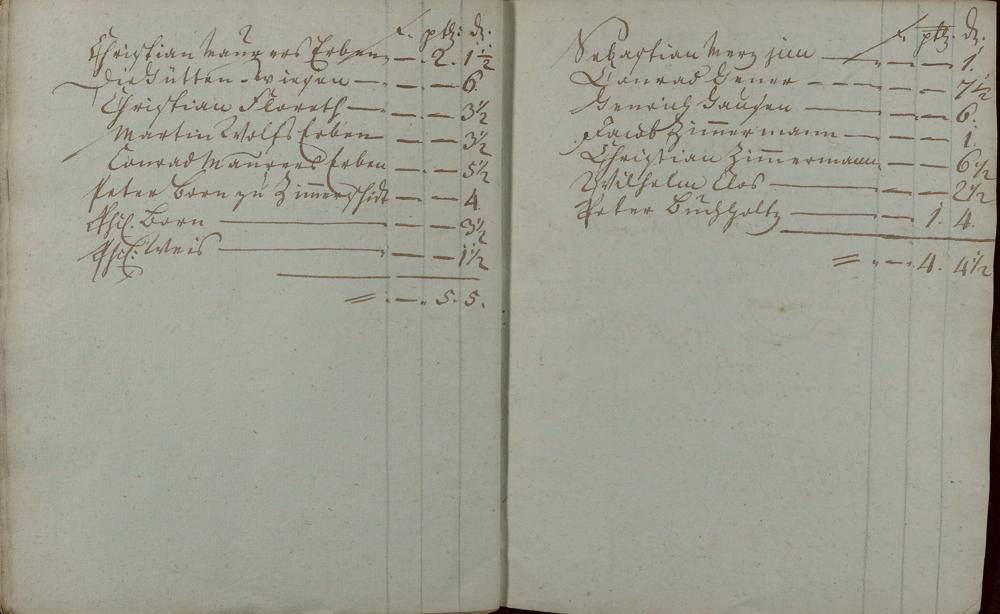 f. ptz: d:
Christian Maurers Erben — 2. 1 1/2
Die Hütten-wiesen — — 6
Christian Floreth — — — 3 1/2
Martin Wolfs Erben — — 3 1/2
Conrad Maurers Erben — — 5 1/2
Peter Born zu Zimmerschidt — — 4.
Born — — — 3 1/2
Weis — — — 1 1/2
= — 5. 5.
f. ptz d:
Sebastian Merz jun — — — 1.
Conrad — — — 7 1/2
Henrich Hausen — — — 6.
Jacob Zimmermann — — — 1.
Christian Zimmermann — — 6 1/2
Wilhelm Clos — — — 2 1/2
Peter Buchholtz — — 1. 4.
= — 4. 4 1/2